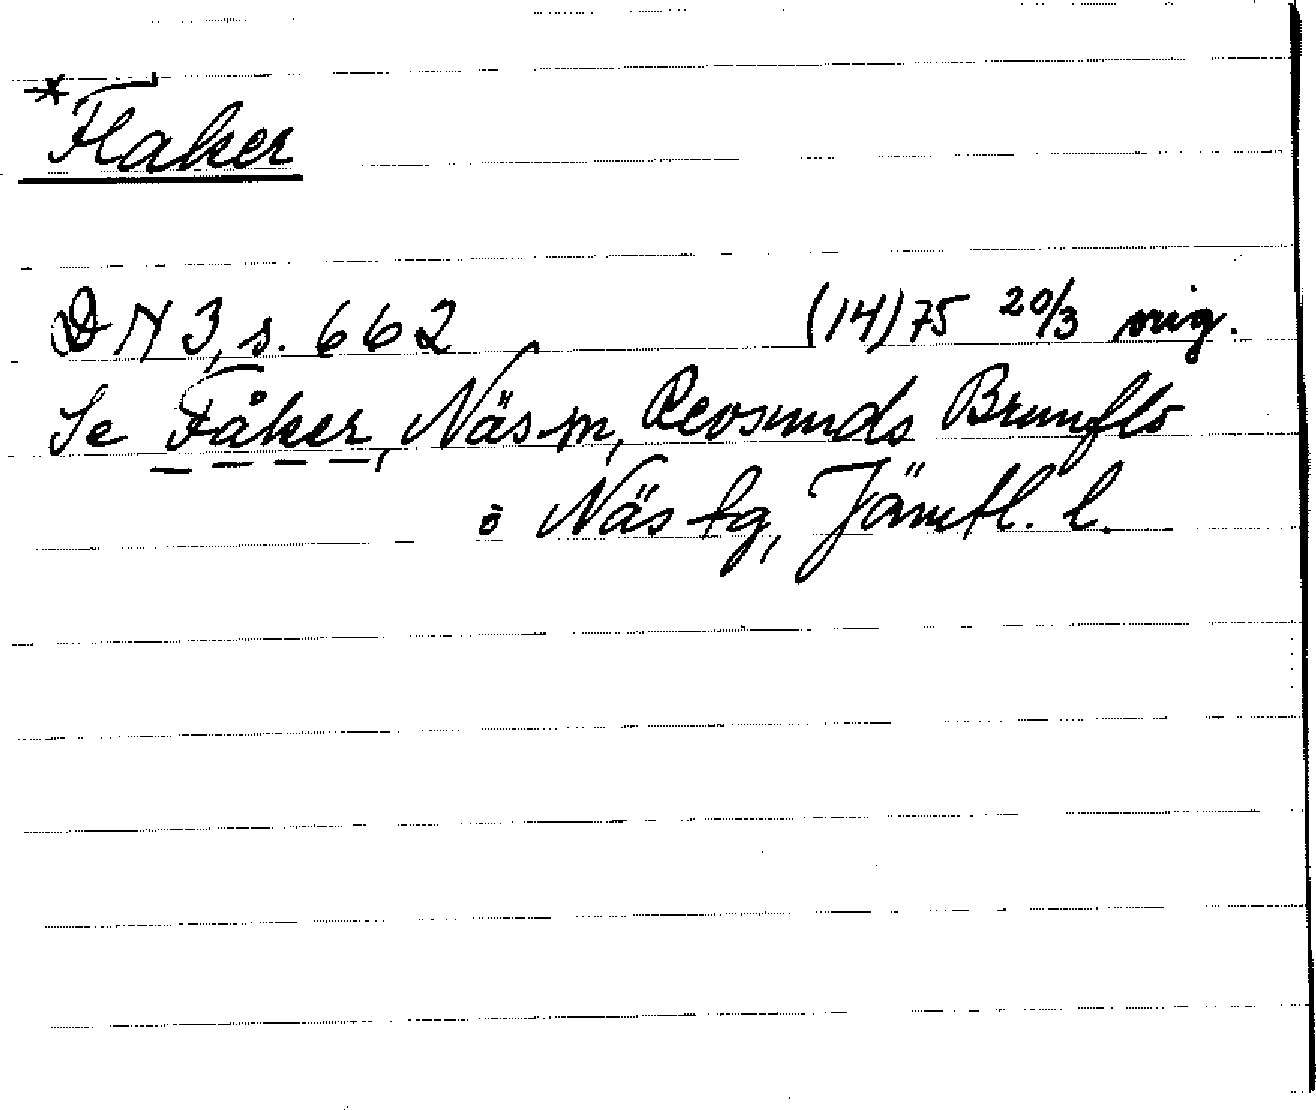 *Flaker
DN 3, s. 662 (14)75 20/3 orig.
Se Fåker, Näs sn, Revsunds Brunflo
o Näs tg, Jämtl. l.